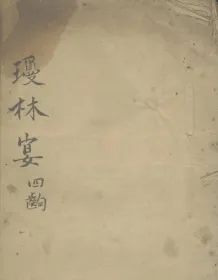 瓊林宴 四齣